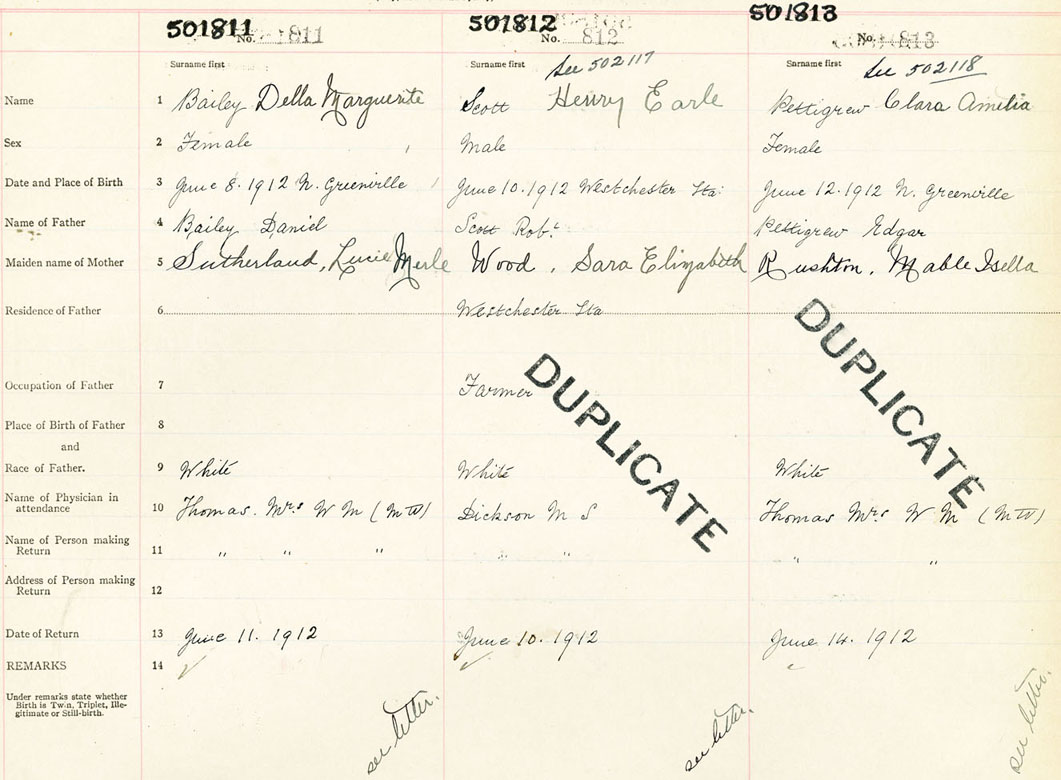 501811 No. 1811 501812 No. 812 501813 No. 813
Surname first Surname first See 502117 Surname first See 502118
Name 1 Bailey Della Marguerite Scott Henry Earle Pettigrew Clara Amelia
Sex 2 Female Male Female
Date and Place of Birth 3 June 8. 1912 N. Greenville June 10. 1912 Westchester Sta. June 12. 1912 N. Greenville
Name of Father 4 Bailey Daniel Scott Robt. Pettigrew Edgar
Maiden name of Mother 5 Sutherland, Lucie Merle Wood, Sara Elizabeth Rushton, Mable Isella
Residence of Father 6 Westchester Sta
DUPLICATE DUPLICATE
Occupation of Father 7 Farmer
Place of Birth of Father 8
and
Race of Father. 9 White White White
Name of Physician in
attendance 10 Thomas. Mrs W M (MW) Dickson M S Thomas Mrs W M (MW)
Name of Person making
Return 11 " " " " " " "
Address of Person making
Return 12
Date of Return 13 June 11. 1912 June 10. 1912 June 14. 1912
REMARKS 14
Under remarks state whether
Birth is Twin, Triplet, Ille-
gitimate or Still-birth.
see letter. see letter. see letter.